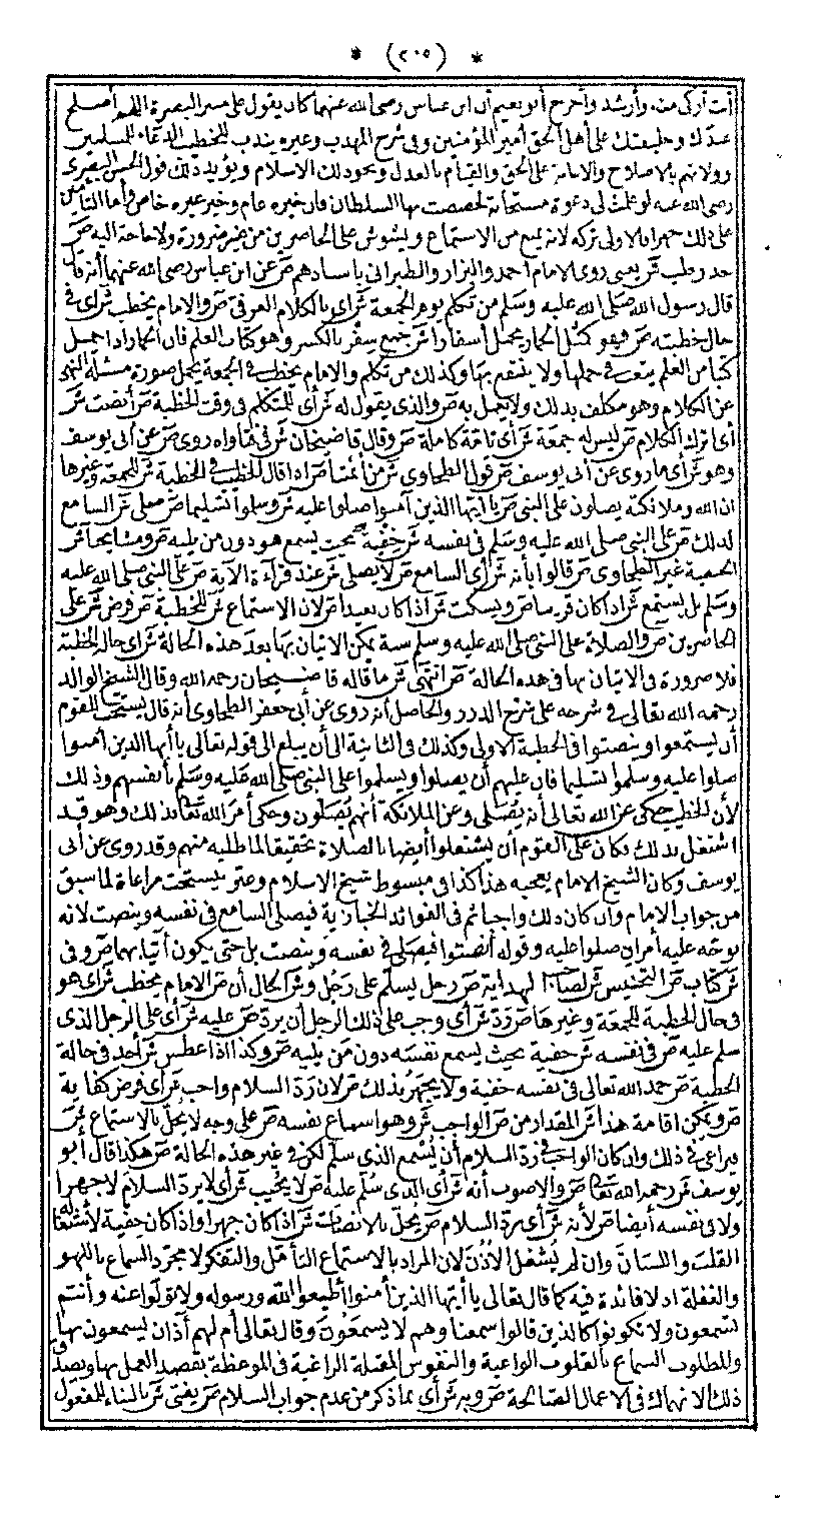 * (٢٠٥) *
أنت أزكى منه وأرشد وأخرج أبو نعيم أن ابن عباس رضي الله عنهما كان يقول على منبر البصرة اللهم أصلح
عبدك وخليفتك على أهل الحق أمير المؤمنين وفي شرح المهذب وغيره يندب للخطيب الدعاء للمسلمين
وولاتهم بالاصلاح والاعانة على الحق والقيام بالعدل ونحو ذلك الاسلام ويؤيد ذلك قول الحسن البصري
رضي الله عنه لو علمت لى دعوة مستجابة لخصصت بها السلطان فان خيره عام وخير غيره خاص وأما التأمين
على ذلك جهرا فالاولى تركه لانه يمنع من الاستماع ويشوش على الحاضرين من غير ضرورة ولا حاجة اليه ص
حد رطب ش يعنى روى الامام احمد والبزار والطبرانى باسنادهم ص عن ابن عباس رضى الله عنهما أنه قال
قال رسول الله صلى الله عليه وسلم من تكلم يوم الجمعة ش أى بالكلام العرفى ص والامام يخطب ش أى فى
حال خطبته ص فهو كمثل الحمار يحمل أسفارا ش جمع سفر بالكسر وهو كتاب العلم فان الحمار اذا حمل
كتبا من العلم يتعب فى حملها ولا ينتفع بها وكذلك من تكلم والامام يخطب فى الجمعة يحمل صورة مسئلة النهى
عن الكلام وهو مكلف بذلك ولا يعمل به ص والذى يقول له ش أى للمتكلم فى وقت الخطبة ص أنصت ش
أى اترك الكلام ص ليس له جمعة ش أى تامة كاملة ص وقال قاضيخان ش فى فتاواه روى ص عن أبى يوسف
وهو ش أى ما روى عن أبى يوسف ص قول الطحاوى ش من أئمتنا ص اذا قال الخطيب فى الخطبة ش للجمعة وغيرها
ان الله وملائكته يصلون على النبى ص يا أيها الذين آمنوا صلوا عليه ش وسلموا تسليما ص صلى ش السامع
لذلك ص على النبى صلى الله عليه وسلم فى نفسه ش خفية بحيث يسمع هو دون من يليه ص ومشايخنا ش
الحنفية غير الطحاوى ص قالوا بأنه ش أى السامع ص لا يصلى ش عند قراءة الآية ص على النبى صلى الله عليه
وسلم بل يستمع ش اذا كان قريبا ص ويسكت ش اذا كان بعيدا ص لان الاستماع ش للخطبة ص فرض ش على
الحاضرين ص والصلاة على النبى صلى الله عليه وسلم سنة يمكن الاتيان بها بعد هذه الحالة ش أى حالة الخطبة
فلا ضرورة فى الاتيان بها فى هذه الحالة ص انتهى ش ما قاله قاضيخان رحمه الله وقال الشيخ الوالد
رحمه الله تعالى فى شرحه على شرح الدرر والحاصل أنه روى عن أبى جعفر الطحاوى أنه قال يستحب للقوم
أن يستمعوا وينصتوا فى الخطبة الاولى وكذلك فى الثانية الى أن يبلغ الى قوله تعالى يا أيها الذين آمنوا
صلوا عليه وسلموا تسليما فان عليهم أن يصلوا ويسلموا على النبى صلى الله عليه وسلم بأنفسهم وذلك
لأن الخطيب حكى عن الله تعالى أنه يصلى وعن الملائكة أنهم يصلون وحكى أمر الله تعالى بذلك وهو قد
اشتغل بذلك فكان على القوم أن يشتغلوا أيضا بالصلاة تحقيقا لما طلبه منهم وقد روى عن أبى
يوسف وكان الشيخ الامام يعجبه هذا كذا فى مبسوط شيخ الاسلام وعبر بيستحب مراعاة لما سبق
من جواب الامام وان كان ذلك واجبا ثم فى الفوائد الخبازية فيصلى السامع فى نفسه وينصت لانه
توجه عليه أمران صلوا عليه وقوله أنصتوا فيصلى فى نفسه وينصت بل حتى يكون آتيا بهما ص وفى
ش كتاب ص التجنيس ش لصاحب الهداية ص رجل يسلم على رجل و ش الحال أن ص الامام يخطب ش أى هو
فى حال الخطبة للجمعة وغيرها ص رد ش أى وجب على ذلك الرجل أن يرد ص عليه ش أى على الرجل الذى
سلم عليه ص فى نفسه ش خفية بحيث يسمع نفسه دون من يليه ص وكذا اذا عطس ش أحد فى حالة
الخطبة ص حمد الله تعالى فى نفسه خفية ولا يجهر بذلك ص لان رد السلام واجب ش أى فرض كفاية
ص ويمكن اقامة هذا ش المقدار من ص الواجب ش وهو اسماع نفسه ص على وجه لا يخل بالاستماع ش
فيراعى فى ذلك وان كان الواجب فى رد السلام أن يسمع الذى سلم لكن فى غير هذه الحالة ص هكذا قال أبو
يوسف ش رحمه الله تعالى ص والاصوب أنه ش أى الذى سلم عليه ص لا يجيب ش أى لا يرد السلام لا جهرا
ولا فى نفسه أيضا ص لأنه ش أى برد السلام ص يخل بالانصات ش اذا كان جهرا واذا كان خفية لأشغاله
القلب واللسان وان لم يشغل الأذن لان المراد بالاستماع التأمل والتفكر لا مجرد السماع باللهو
والغفلة اذ لا فائدة فيه كما قال تعالى يا أيها الذين آمنوا أطيعوا الله ورسوله ولا تولوا عنه وأنتم
تسمعون ولا تكونوا كالذين قالوا سمعنا وهم لا يسمعون وقال تعالى أم لهم آذان يسمعون بها
والمطلوب السماع بالقلوب الواعية والنفوس المقبلة الراغبة فى الموعظة بقصد العمل بها وبضد
ذلك الانهماك فى الاعمال الصالحة ص وبه ش أى بما ذكر من عدم جواب السلام ص يفتى ش بالبناء للمفعول